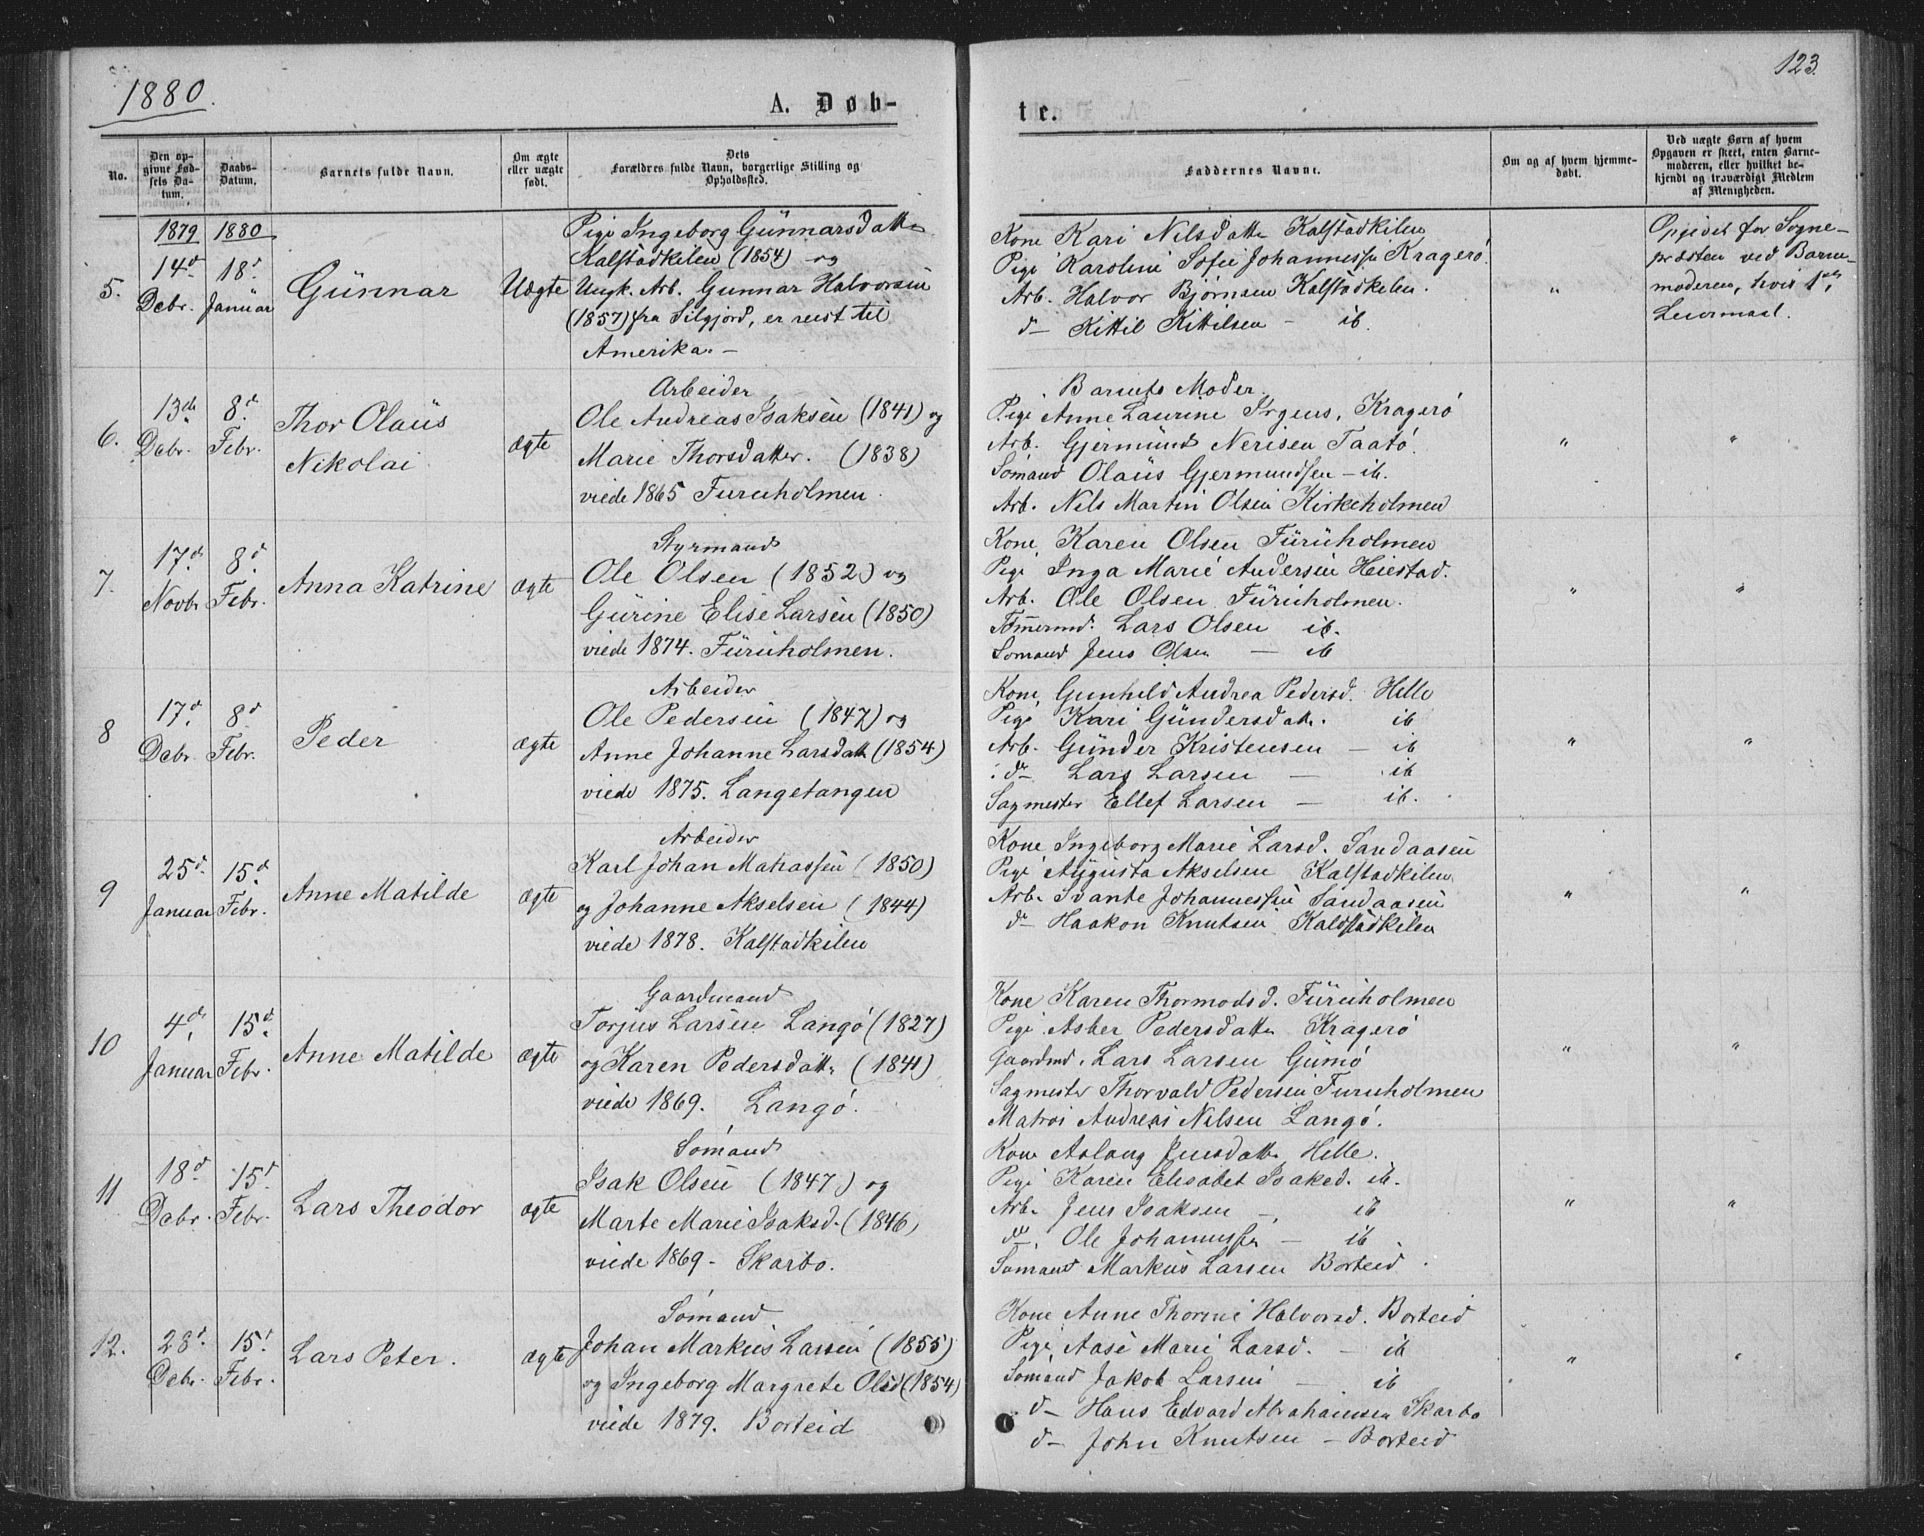 1880.
A. Døb-
No.
Den opgivne Fødsels Datum.
Daabs-Datum.
Barnets fulde Navn.
Om ægte eller uægte født.
Dets Forældres fulde Navn, borgerlige Stilling og Opholdssted.
5.
1879
14d
Debr.
1880
18d
Januar
Günnar
Uægte
Pige Ingeborg Günnarsdattr
Kalstadkilen (1854) og
Ungk. Arb. Gunnar Halvorsen
(1857) fra Silgjord, er reist til
Amerika. —
6.
13de
Debr.
8d
Febr.
Thor Olaüs
Nikolai
ægte
Arbeider
Ole Andreas Isaksen (1841) og
Marie Thorsdatter. (1838)
viede 1865 Furuholmen.
7.
17d
Novbr
8d
Febr.
Anna Katrine
ægte
Styrmand
Ole Olsen (1852) og
Gürine Elise Larsen (1850)
viede 1874. Füruholmen.
8
17d
Debr.
8d
Febr.
Peder
ægte
Arbeider
Ole Pedersen (1847) og
Anne Johanne Larsdattr (1854)
viede 1875. Langetangen
9
25d
Januar
15d
Febr.
Anne Matilde
ægte
Arbeider
Karl Johan Matiassen (1850)
og Johanne Akselsen (1844)
viede 1878. Kalstadkilen
10
4d
Januar
15d
Febr.
Anne Matilde
ægte
Gaardmand
Torjus Larsen Langö (1827)
og Karen Pedersdattr (1841)
viede 1869. Langö.
11
18d
Debr.
15d
Febr.
Lars Theodor
ægte
Sömand
Isak Olsen (1847) og
Marte Marie Isaksd. (1846)
viede 1869 - Skarbo.
12.
28d
Debr.
15d
Febr.
Lars Peter.
ægte
Sömand
Johan Markus Larsen (1855)
og Ingeborg Margrete Olsd (1854)
viede 1879. Borteid
123.
te.
Faddernes Navne.
Om og af hvem hjemmedøbt.
Ved uægte Børn af hvem Opgaven er skeet, enten Barnemoderen, eller hvilket bekjendt og troværdigt Medlem af Menigheden.
Kone Kari Nilsdattr Kalstadkilen
Pige Karoline Sofie Johannessen Kragerö.
Arb. Halvor Björnsen Kalstadkilen.
d— Kittil Kittilsen — ib.
"
Opgivet for Sogne-
præsten ved Barne-
moderen, hvis 1ste
Leiermaal.
Barnets Moder.
Pige Anne Laurine Irgens, Kragerö
Arb. Gjermund Nerisen Taatö.
Sömand Olaüs Gjermundsen - ib.
Arb. Nils Martin Olsen Kirkeholmen
"
"
Kone Karen Olsen Füruholmen
Pige Inga Marie Andersen Heiestad.
Arb. Ole Olsen Füruholmen.
Tömermd. Lars Olsen ib.
Sömand Jens Olsen — ib
"
"
Kone Gunhild Andrea Pedersd. Helle
Pige Kari Gündersdattr. ib
Arb. Günder Kristensen — ib
do Lars Larsen — ib
Sagmester Ellef Larsen — ib.
"
"
Kone Ingeborg Marie Larsd. Sandaasen
Pige Augusta Akselsen Kalstadkilen
Arb. Svante Johannessen Sandaasen
d— Haakon Knutsen Kaldstadkilen
"
"
Kone Karen Thormodsd. Füruholmen
Pige Asber Pedersdattr Kragerö
Gaardmd. Lars Larsen Gumö
Sagmester Thorvald Pedersen Furuholmen
Matros Andreas Nilsen Langö.
"
"
Kone Aslaug Jensdattr Helle.
Pige Karen Elisabet Isaksd. ib.
Arb. Jens Isaksen — ib
do Ole Johannessen — ib
Sömand Markus Larsen Borteid
"
"
Kone Anne Thorine Halvorsd. Borteid
Pige Aase Marie Larsd. — ib
Sömand Jakob Larsen — ib
d— Hans Edvard Abrahamsen Skarbo
d— John Knutsen — Borteid
"
"